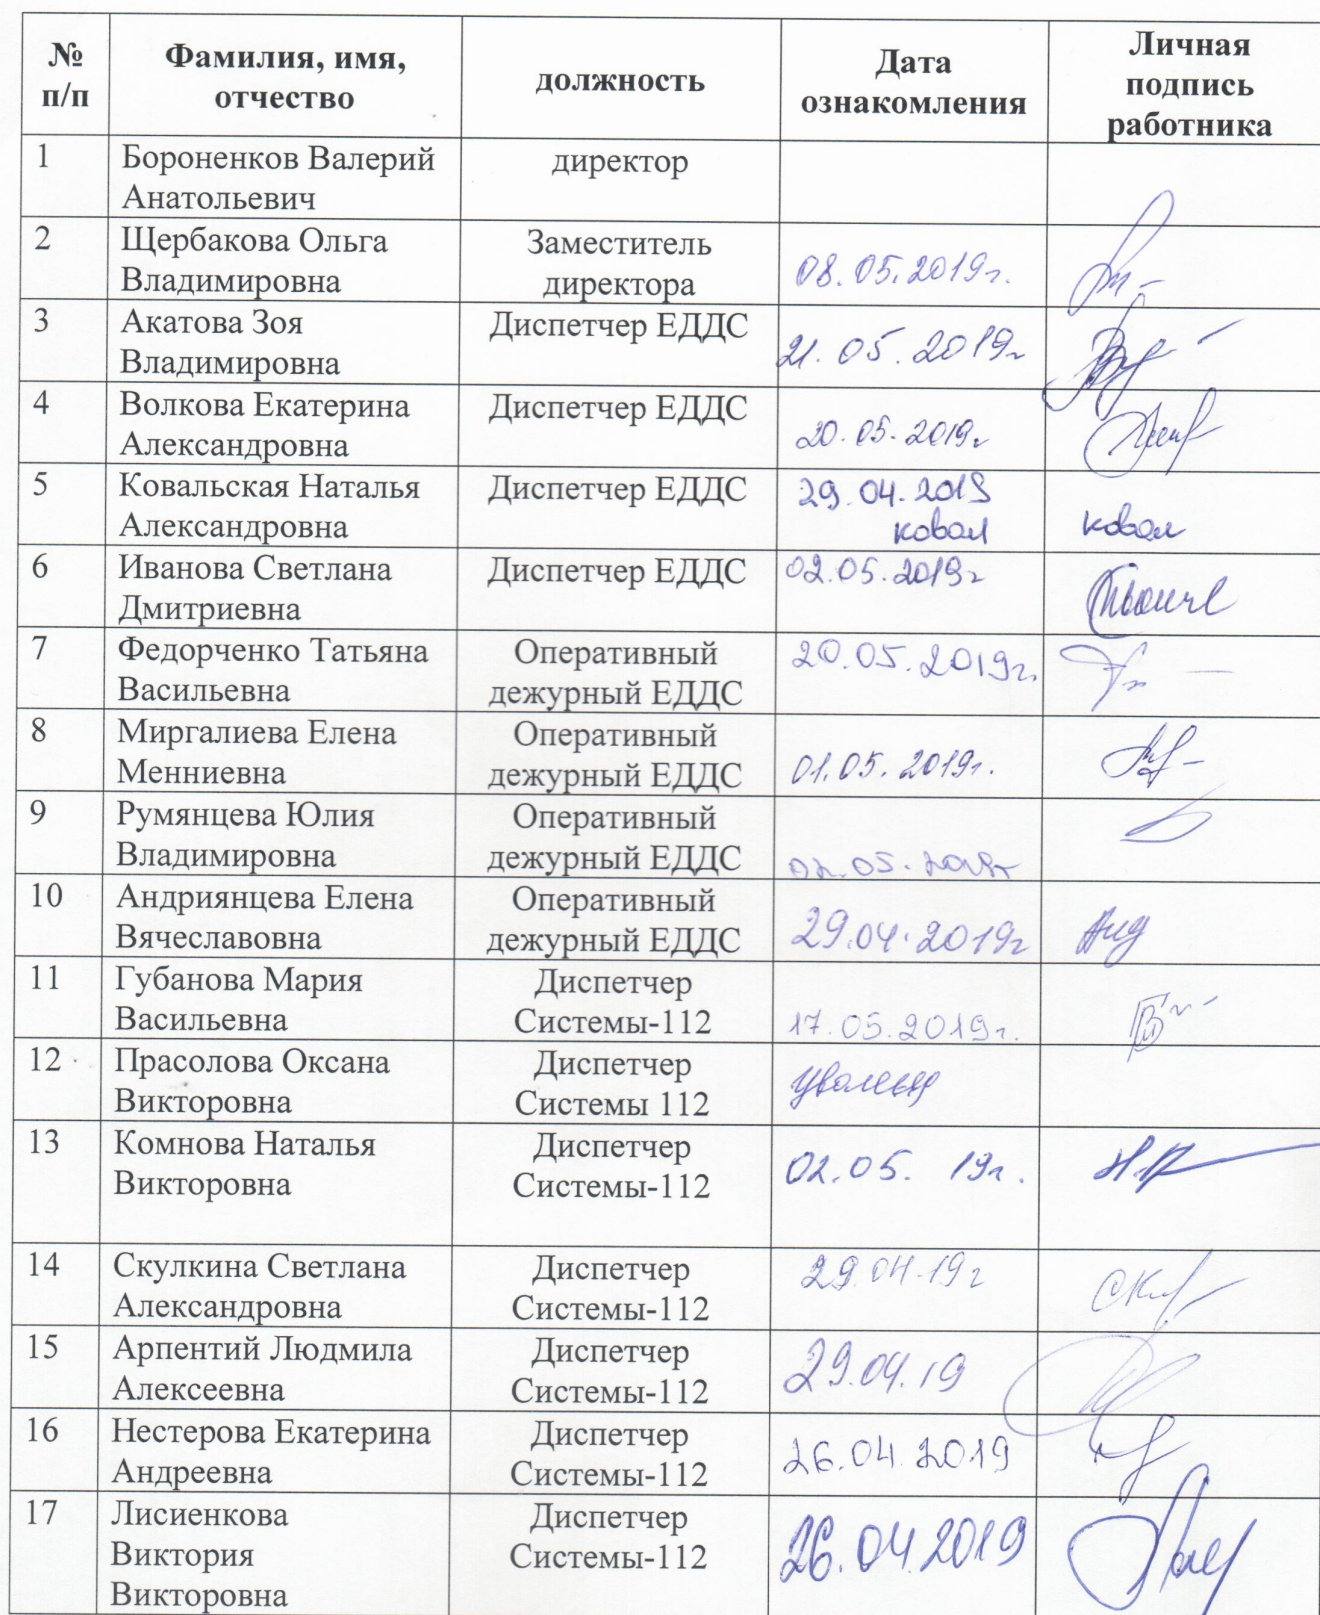 № п/п
Фамилия, имя, отчество
должность
Дата ознакомления
Личная подпись работника
1
Бороненков Валерий
Анатольевич
директор
2
Щербакова Ольга
Владимировна
Заместитель
директора
08.05.2019г.
3
Акатова Зоя
Владимировна
Диспетчер ЕДДС
21.05.2019г
4
Волкова Екатерина
Александровна
Диспетчер ЕДДС
20.05.2019г
5
Ковальская Наталья
Александровна
Диспетчер ЕДДС
29.04.2019
ковал
ковал
6
Иванова Светлана
Дмитриевна
Диспетчер ЕДДС
02.05.2019г
7
Федорченко Татьяна
Васильевна
Оперативный
дежурный ЕДДС
20.05.2019г.
8
Миргалиева Елена
Менниевна
Оперативный
дежурный ЕДДС
01.05.2019г.
9
Румянцева Юлия
Владимировна
Оперативный
дежурный ЕДДС
02.05.2019г
10
Андриянцева Елена
Вячеславовна
Оперативный
дежурный ЕДДС
29.04.2019г
Анд
11
Губанова Мария
Васильевна
Диспетчер
Системы-112
17.05.2019г.
12
Прасолова Оксана
Викторовна
Диспетчер
Системы 112
13
Комнова Наталья
Викторовна
Диспетчер
Системы-112
02.05. 19г.
14
Скулкина Светлана
Александровна
Диспетчер
Системы-112
29.04.19г
15
Арпентий Людмила
Алексеевна
Диспетчер
Системы-112
29.04.19
16
Нестерова Екатерина
Андреевна
Диспетчер
Системы-112
26.04.2019
17
Лисиенкова
Виктория
Викторовна
Диспетчер
Системы-112
26.04.2019